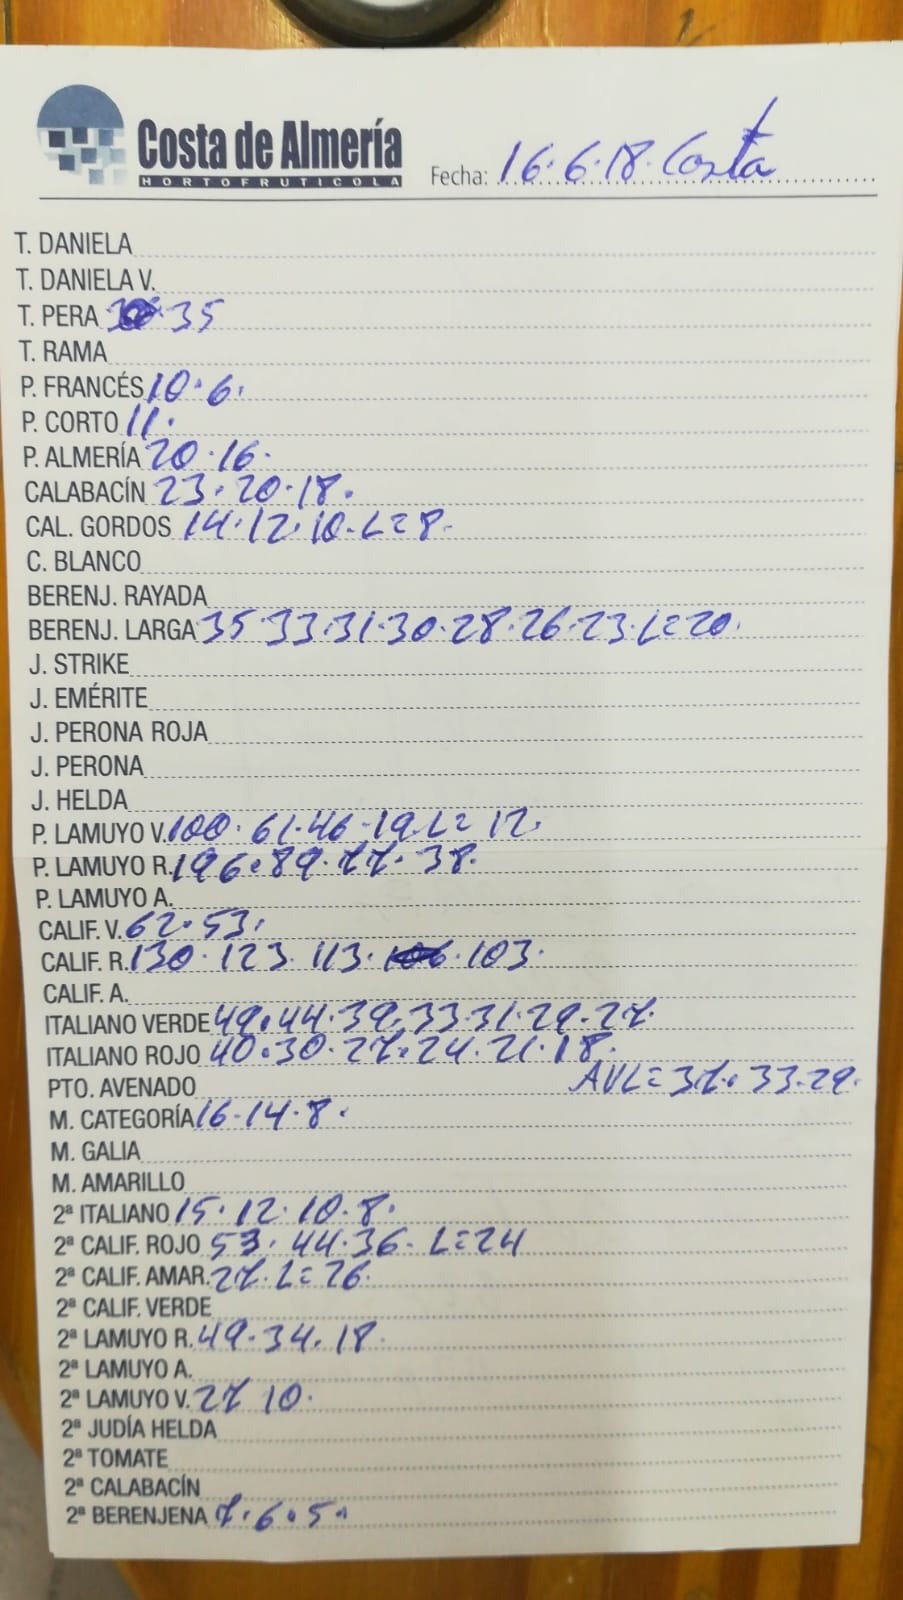 Costa de Almería
HORTOFRUTICOLA
Fecha: 16.6.18. Costa
T. DANIELA
T. DANIELA V.
T. PERA 35
T. RAMA
P. FRANCÉS 10.6.
P. CORTO 11.
P. ALMERÍA 20.16.
CALABACÍN 23.20.18.
CAL. GORDOS 14.12.10.L=8.
C. BLANCO
BERENJ. RAYADA
BERENJ. LARGA 35.33.31.30.28.26.23.L=20.
J. STRIKE
J. EMÉRITE
J. PERONA ROJA
J. PERONA
J. HELDA
P. LAMUYO V. 100.61.46.19.L=12.
P. LAMUYO R. 196.89.77.38.
P. LAMUYO A.
CALIF. V. 62.53.
CALIF. R. 130.123.113.106.103.
CALIF. A.
ITALIANO VERDE 49.44.39.33.31.29.27.
ITALIANO ROJO 40.30.27.24.21.18.
PTO. AVENADO AVL=37.33.29.
M. CATEGORÍA 16.14.8.
M. GALIA
M. AMARILLO
2ª ITALIANO 15.12.10.8.
2ª CALIF. ROJO 53.44.36.L=24
2ª CALIF. AMAR. 27.L=26.
2ª CALIF. VERDE
2ª LAMUYO R. 49.34.18.
2ª LAMUYO A.
2ª LAMUYO V. 27 10.
2ª JUDÍA HELDA
2ª TOMATE
2ª CALABACÍN
2ª BERENJENA 7.6.5.